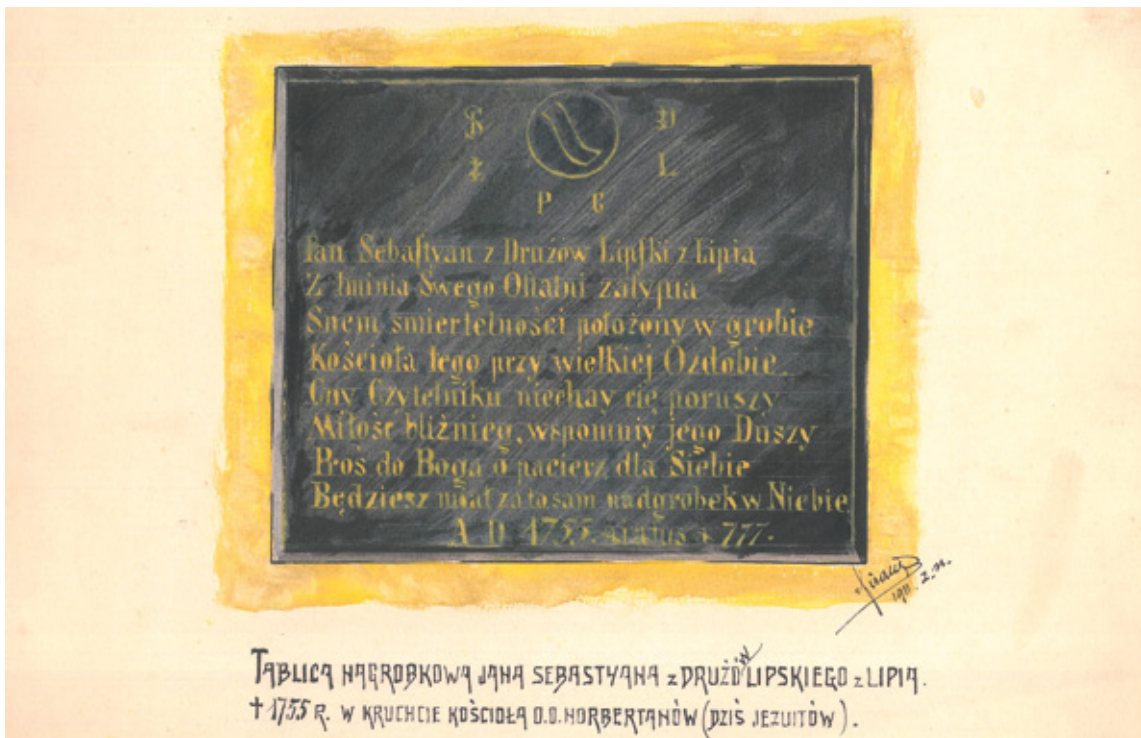 P G
Jan Sebastyan z Drużow Lipski z Lipia
Z Iminia Swego Ostatni zasypia
Snem śmiertelności położony w grobie
Kościoła tego przy wielkiej Ozdobie
Cny Czytelniku niechay cię poruszy
Miłość bliźnieg, wspomniy jego Duszy
Proś do Boga o pacierz dla Siebie
Będziesz miał za to sam nadgrobek w Niebie
A D 1755.
1911
TABLICA NAGROBKOWA JANA SEBASTYANA z DRUŻÓW LIPSKIEGO z LIPIA.
† 1755 R. W KRUCHCIE KOŚCIOŁA O.O. NORBERTANÓW (DZIŚ JEZUITÓW).